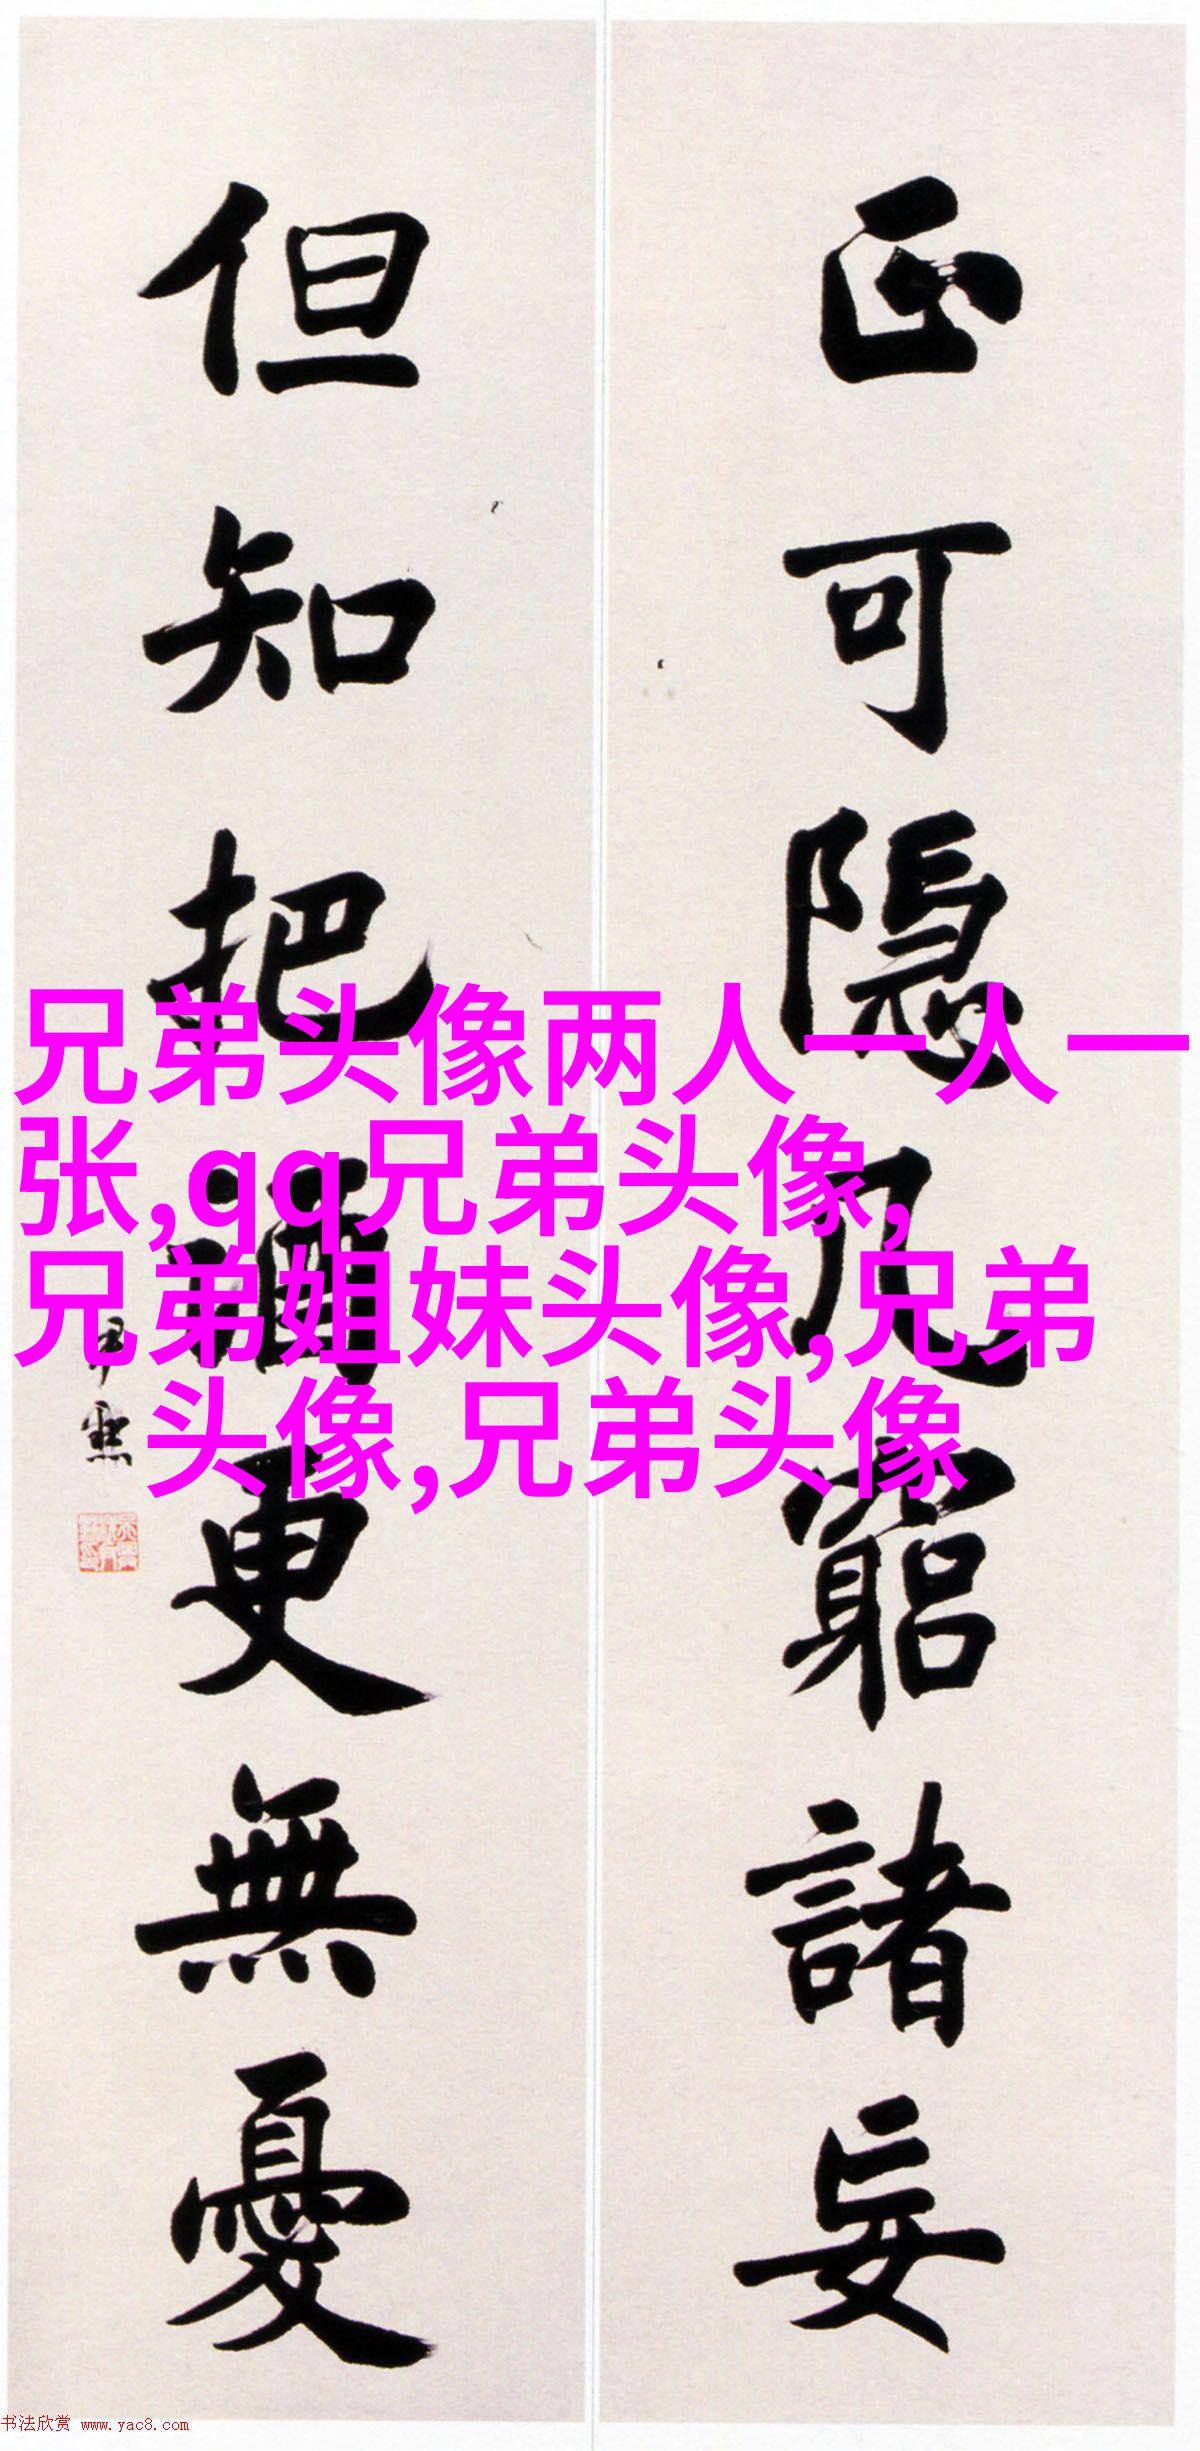 正可隱几窮諸妄
但知把酒更無憂
兄弟头像两人一人一
张,qq兄弟头像,
兄弟姐妹头像,兄弟
头像,兄弟头像
书法欣赏 www.yac8.com